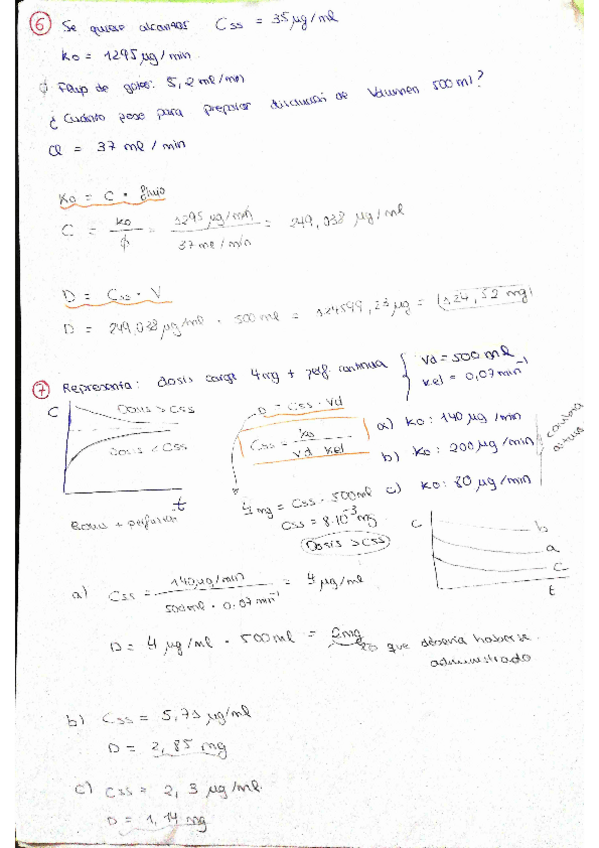 ⑥ Se quiere alcanzar Css = 35 µg/ml
Ko = 1295 µg/min
ϕ Flujo de goteo: 5,2 ml/min
¿Cuánto peso para preparar disolución de Volumen 500 ml?
Cl = 37 ml/min
Ko = C · flujo
C = ko / ϕ = 1295 µg/min / 37 ml/min = 249,038 µg/ml
D = Css · V
D = 249,038 µg/ml · 500 ml = 124599,23 µg = 124,52 mg
⑦ Representa: dosis carga 4 mg + perf. continua { Vd = 500 ml
kel = 0,07 min⁻¹
C
Dosis > Css
Dosis < Css
t
Bolus + perfusión
D = Css · Vd
Css = ko / Vd kel
4 mg = Css · 500 ml
Css = 8·10⁻³ mg
Dosis > Css
a) Ko: 140 µg/min
b) Ko: 200 µg/min
c) Ko: 80 µg/min
C
b
a
c
t
a) Css = 140 µg/min / 500 ml · 0,07 min⁻¹ = 4 µg/ml
D = 4 µg/ml · 500 ml = 2 mg
lo que debería haberse
administrado
b) Css = 5,71 µg/ml
D = 2,85 mg
c) Css = 2,3 µg/ml
D = 1,14 mg